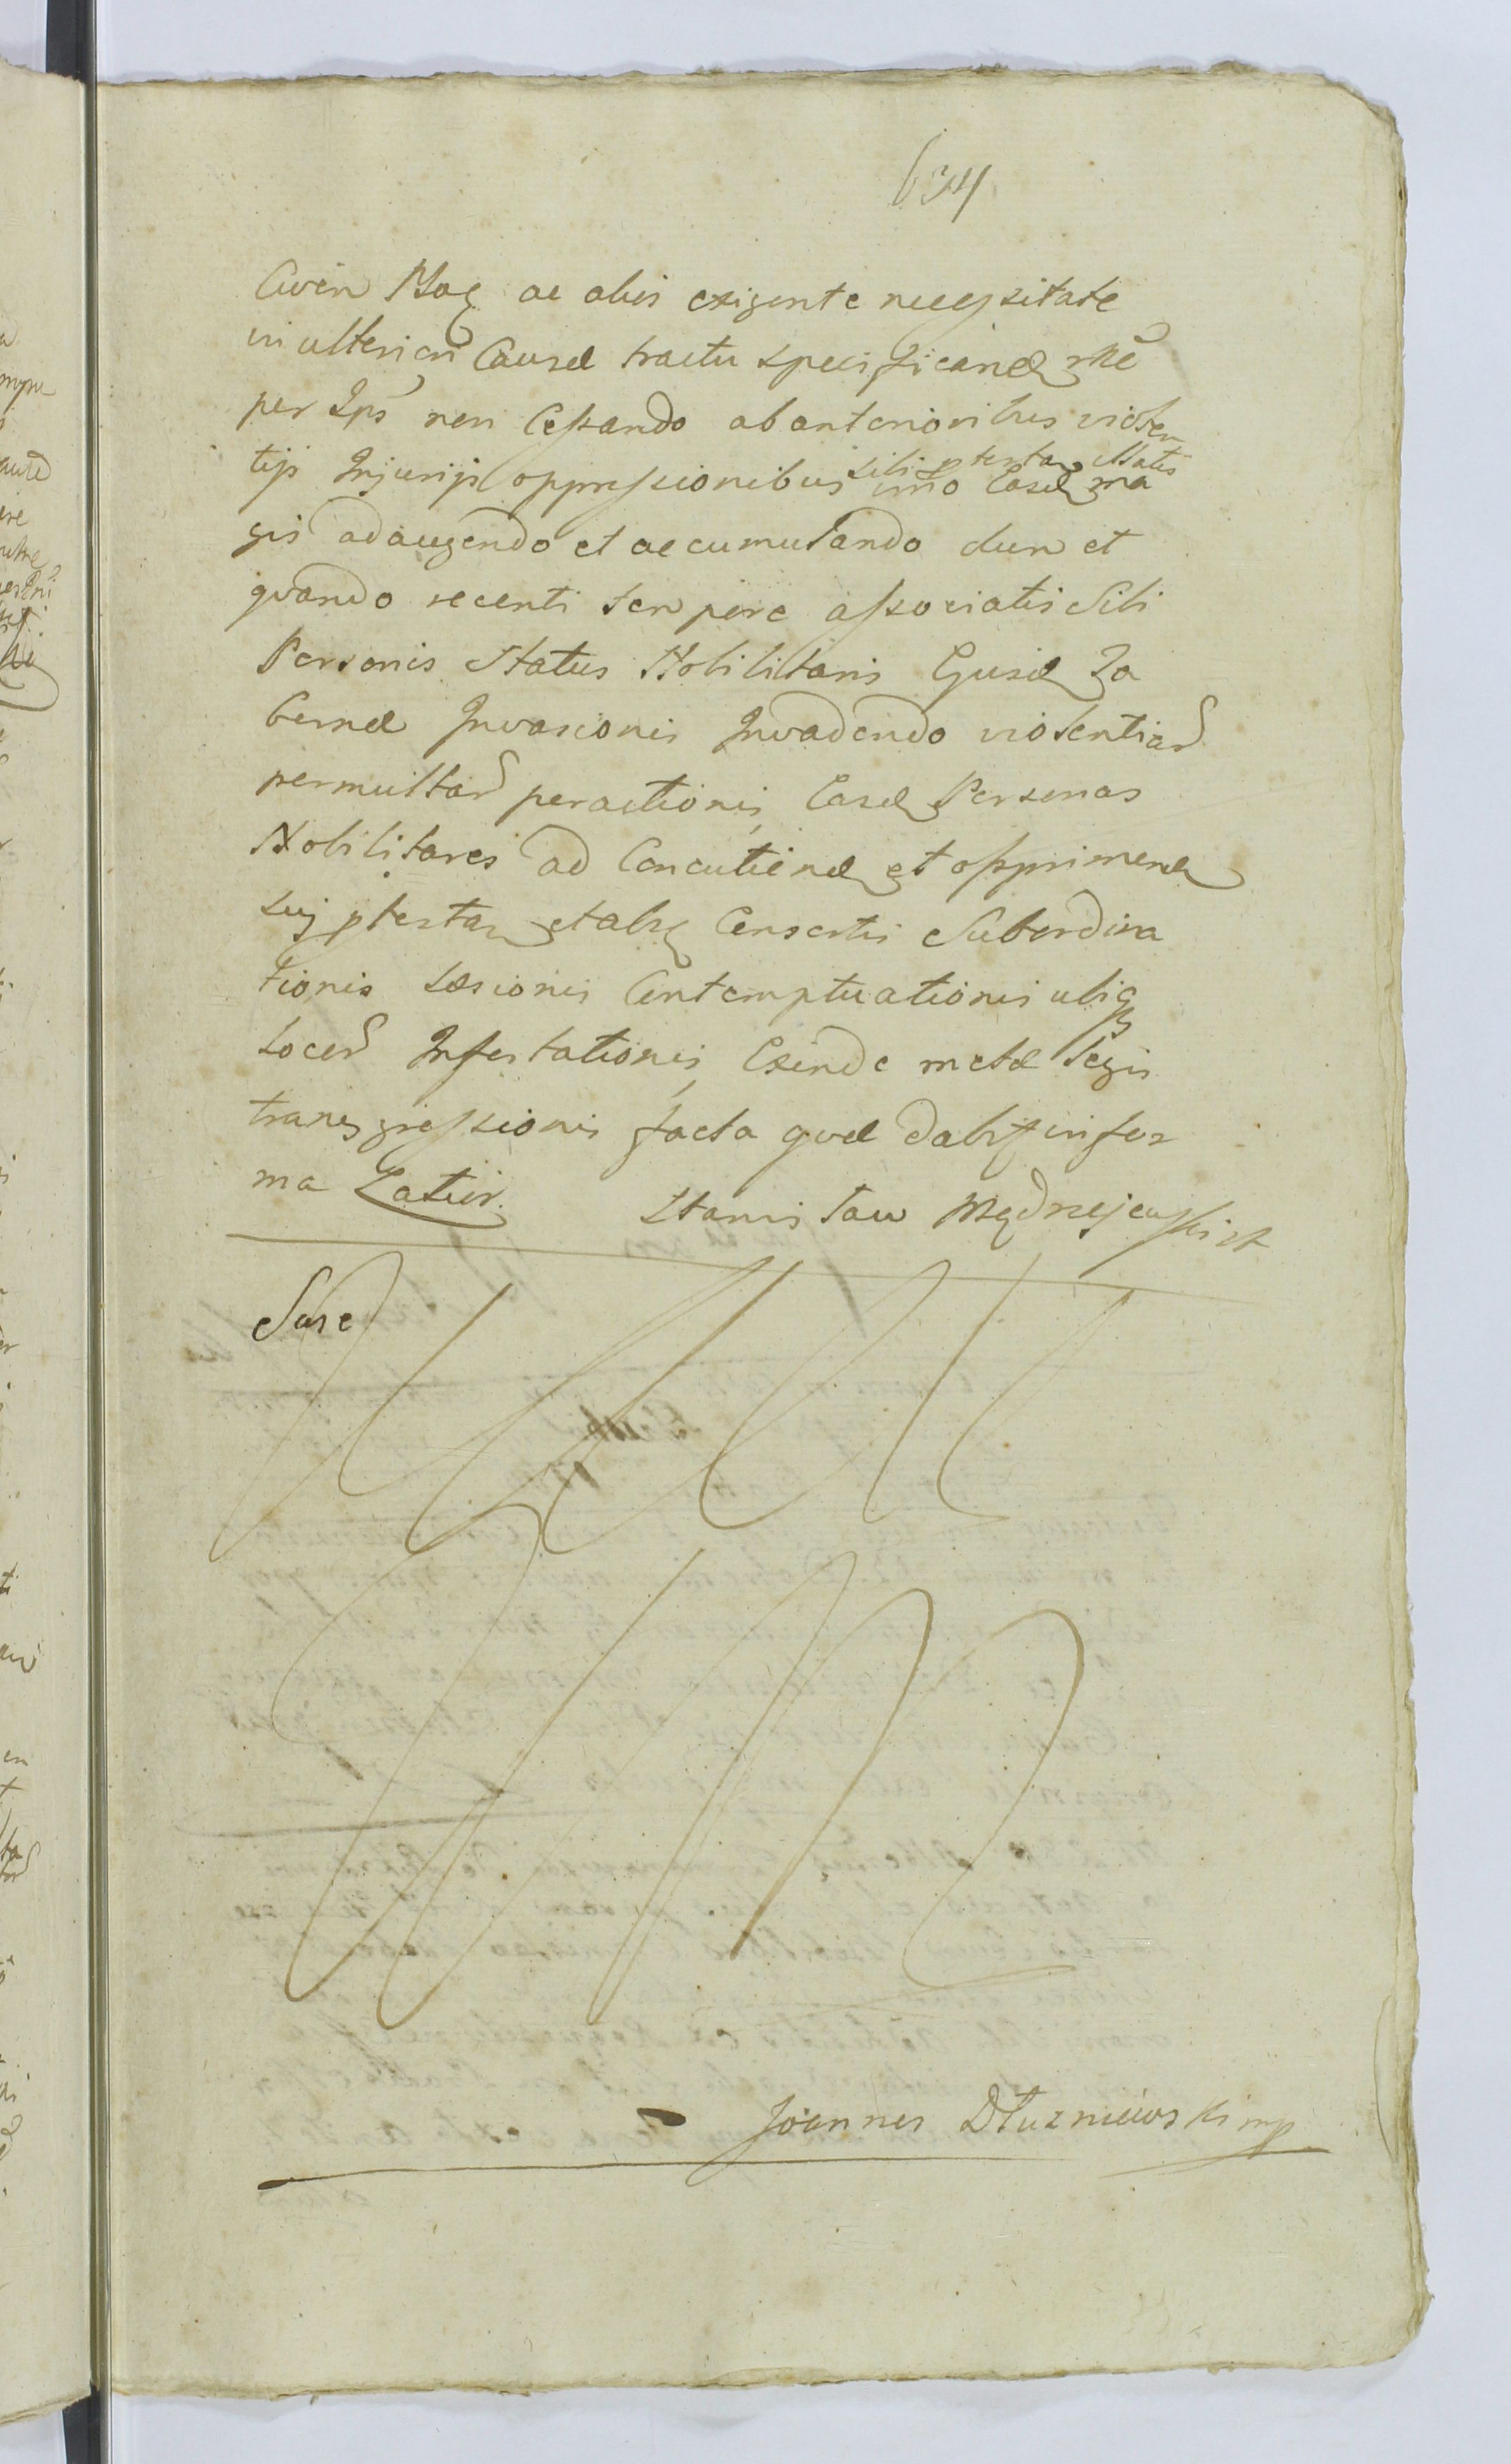 634
Cwen Mag ac aliis exigente necessitate
in ulteriori Causæ tractu specificand rne
per Ips non Cessando ab anterioribus violen
tijs Injurijs oppressionibus sibi ptestar illatis
imo Easd ma
gis adaugendo et accumulando dum et
qvando recenti tempore associatis Sibi
Personis Status Nobilitaris Ejusd Ta
bernæ Invasionis Invadendo violentiar
permultar peractionis, Easd Personas
Nobilitares ad Concutiend et opprimend
suij ptestar et absq Consortis Subordina
tionis Læsionis Contemptuationis ubiq
Locor Infestationis, Exinde metæ Legis
transgressionis facta qvæ dabitr infor
ma Latius.
Stanisław Mędrzejewski
Susc
Joannes Dłuzniewski mp